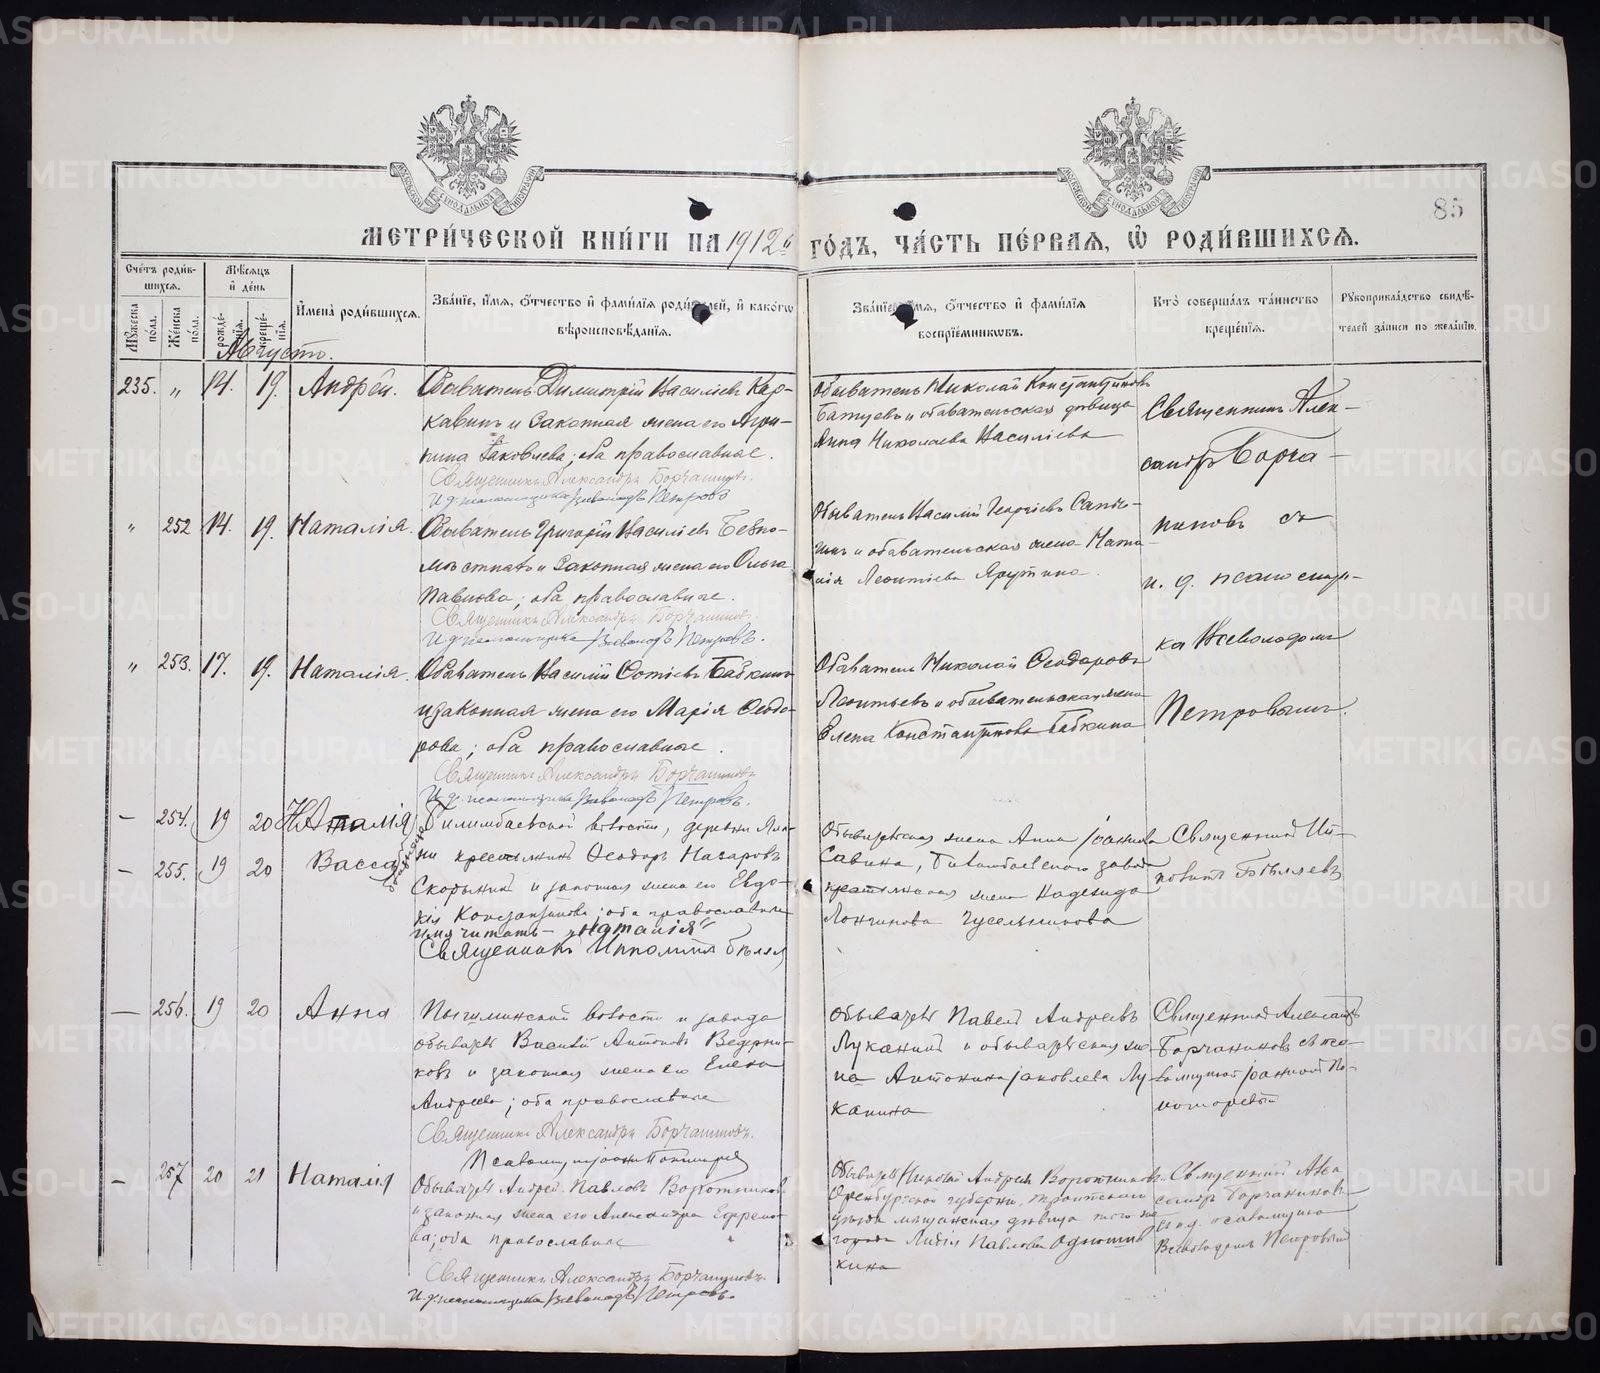 85
МЕТРИ́ЧЕСКОЙ КНИ́ГИ НА 1912 й ГО́ДЪ, ЧА́СТЬ ПЕ́РВАЯ, Ѡ҆ РОДИ́ВШИХСЯ.
Сче́тъ роди́вшихся.
Мꙋ́жеска по́ла.
Же́нска по́ла.
Мѣ́сяцъ и҆ де́нь
рожде́нїя.
креще́нїя.
И҆мена̀ роди́вшихся.
Зва́нїе, и҆́мя, ѻ҆́тчество и҆ фами́лїя роди́телей, и҆ како́гѡ
вѣроисповѣ́данїя.
Зва́нїе, и҆́мя, ѻ҆́тчество и҆ фами́лїя
воспрїе́мникѡвъ.
Кто̀ соверша́лъ та́инство
креще́нїя.
Рꙋкоприкла́дство свидѣ́-
телей за́писи по жела́нїю.
Августъ.
235. " 14. 19. Андрей.
Обыватель Димитрій Васильевъ Кар-
кавинъ и законная жена его Агри-
пина Іаковлева; оба православные.
Священникъ Александръ Борчаниновъ.
И. д. псаломщика Всеволодъ Петровъ
Обыватель Николай Константиновъ
и обывательская дѣвица
Анна Николаева Васильева
Священникъ Алек-
сандръ Борча-
ниновъ съ
и. д. псаломщи-
ка Всеволодомъ
Петровымъ.
" 252 14. 19. Наталія.
Обыватель Григорій Васильевъ Безпо-
мѣстныхъ и законная жена его Ольга
Павлова; оба православные.
Священникъ Александръ Борчаниновъ.
И. д. псаломщика Всеволодъ Петровъ.
Обыватель Василій Георгіевъ
и обывательская жена Ната-
лія Леонтіева
" 253. 17. 19. Наталія.
Обыватель Василій Фотіевъ Бабкинъ
и законная жена его Марія Ѳеодо-
рова; оба православные.
Священникъ Александръ Борчаниновъ
И. д. псаломщика Всеволодъ Петровъ.
Обыватель Николай Ѳеодоровъ
Леонтьевъ и обывательская жена
Елена Константинова Бабкина
— 254. 19 20 Наталія
— 255. 19 20 Васса
Билимбаевской волости, деревни
крестьянинъ Ѳеодоръ Назаровъ
Скорынинъ и законная жена его Евдо-
кія Константинова; оба православные
имя читать — "Наталія"
Священникъ Ипполитъ Бѣляев
Обывательская жена Анна Іоаннова
Савина, Билимбаевского завода
крестьянская жена Надежда
Лонгинова Чусельникова
Священникъ Ип-
политъ Бѣляевъ
— 256. 19 20 Анна
Пышминской волости и завода
обыватель Василій Антоновъ Ведерни-
ковъ и законная жена его Елена
Андреева; оба православные
Священникъ Александръ Борчаниновъ.
Обыватель Павелъ Андреевъ
Луканинъ и обывательская же-
на Антонина Іаковлева Лу-
канина
Священникъ Александръ
Борчаниновъ съ пса-
ломщикомъ Іоанномъ
— 257 20 21 Наталія
Обыватель Андрей Павловъ Воротниковъ
и законная жена его Александра Ефремо-
ва; оба православные
Священникъ Александръ Борчаниновъ.
И. д. псаломщика Всеволодъ Петровъ.
Обыватель Николай Андреевъ Воротниковъ
Оренбургской губерніи, Троитскаго
уѣзда мѣщанская дѣвица того же
города Лидія Павлова
Священникъ Алек-
сандръ Борчаниновъ
съ и. д. псаломщика
Всеволодомъ Петровымъ